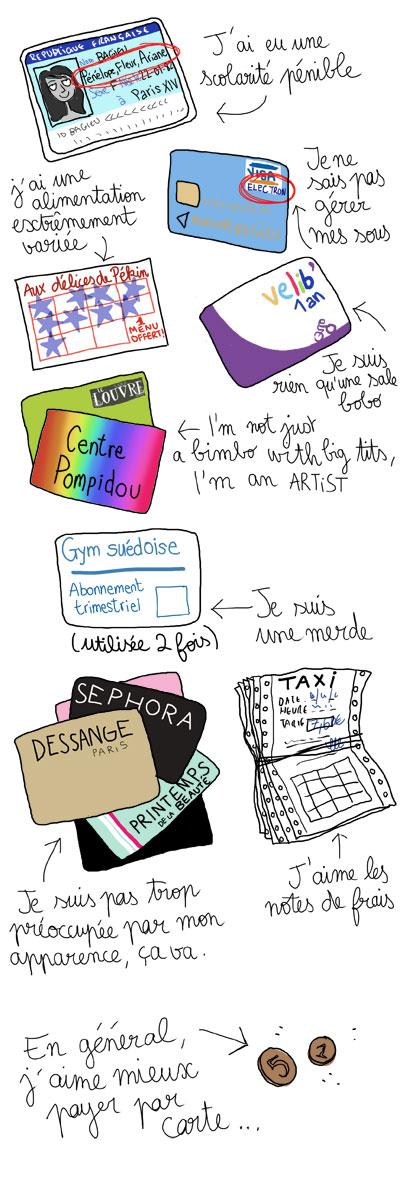 REPUBLIQUE FRANÇAISE
Nom BAGIEU
Pénélope, Fleur, Ariane
Sexe F Né(e) 22-01-82
à Paris XIV
ID BAGIEU <<<<<<<
J'ai eu une
scolarité pénible
VISA
ELECTRON
PENELOPE BAGIEU
Je ne
sais pas
gérer
mes sous
j'ai une
alimentation
esctrêmement
variée
Aux délices de Pékin
MENU
OFFERT!
velib'
1 an
Je suis
rien qu'une sale
bobo
LOUVRE
Centre
Pompidou
I'm not just
a bimbo with big tits,
I'm an ARTiST
Gym suédoise
Abonnement
trimestriel
(utilisée 2 fois)
Je suis
une merde
SEPHORA
DESSANGE
PARIS
PRINTEMPS
DE LA BEAUTÉ
TAXI
DATE
HEURE
TARIF
Je suis pas trop
préoccupée par mon
apparence, ça va.
J'aime les
notes de frais
En général,
j'aime mieux
payer par
carte...
5
1